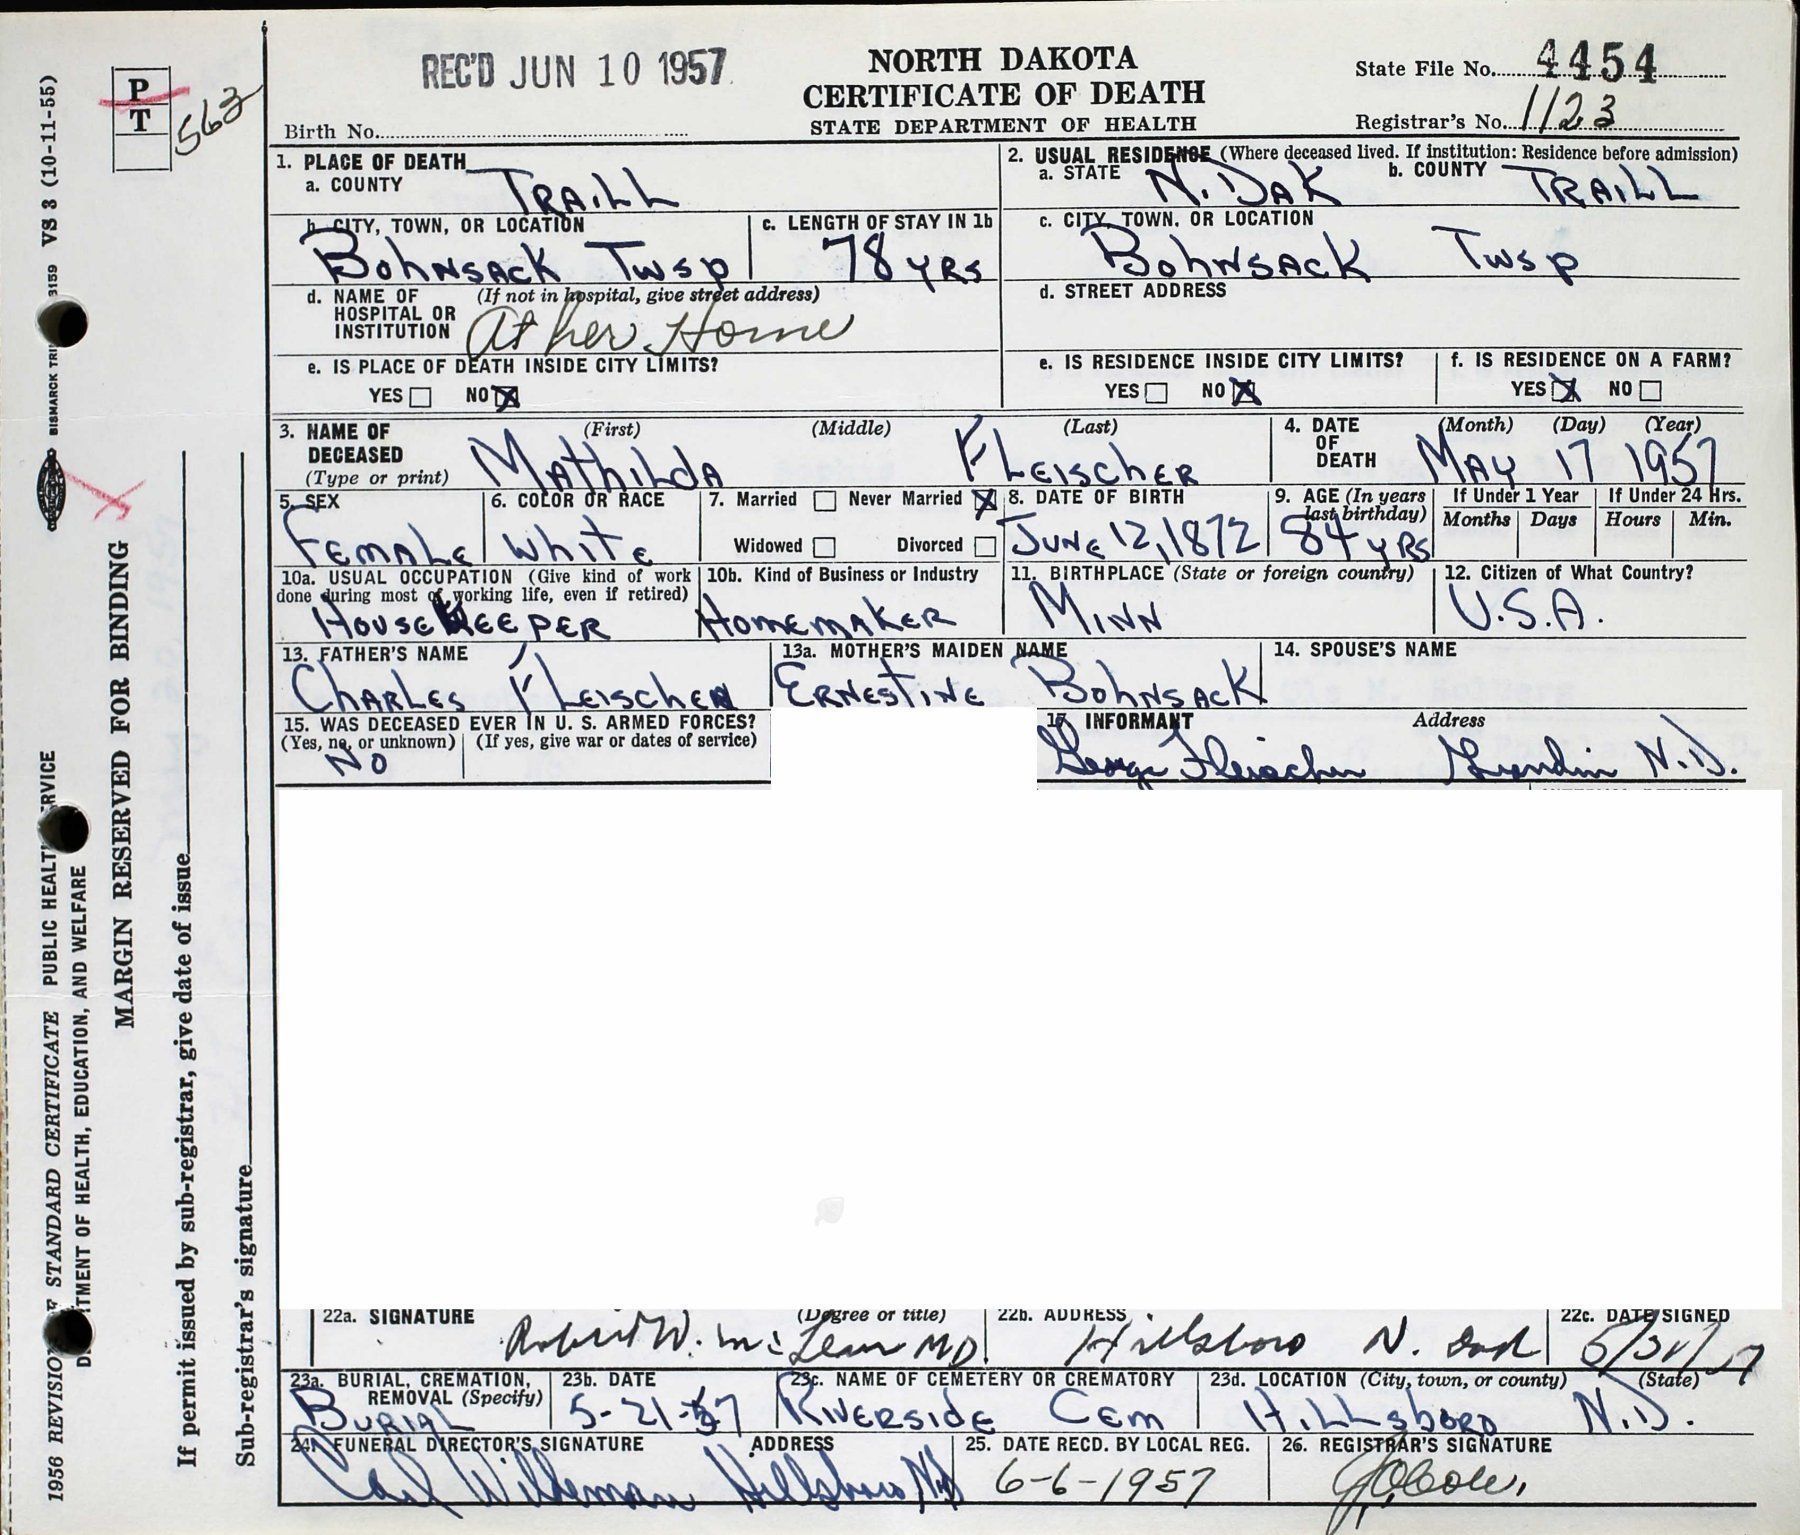 REC'D JUN 10 1957
NORTH DAKOTA
CERTIFICATE OF DEATH
STATE DEPARTMENT OF HEALTH
State File No. 4454
Birth No.
Registrar's No. 1123
P
T
563
1. PLACE OF DEATH
a. COUNTY TRAILL
2. USUAL RESIDENCE (Where deceased lived. If institution: Residence before admission)
a. STATE N. DAK b. COUNTY TRAILL
b. CITY, TOWN, OR LOCATION BOHNSACK TWSP
c. LENGTH OF STAY IN 1b 78 YRS
c. CITY, TOWN, OR LOCATION BOHNSACK TWSP
d. NAME OF HOSPITAL OR INSTITUTION (If not in hospital, give street address) At her Home
d. STREET ADDRESS
e. IS PLACE OF DEATH INSIDE CITY LIMITS?
YES NO X
e. IS RESIDENCE INSIDE CITY LIMITS?
YES NO X
f. IS RESIDENCE ON A FARM?
YES X NO
3. NAME OF DECEASED (Type or print)
(First) (Middle) (Last)
MATHILDA FLEISCHER
4. DATE OF DEATH (Month) (Day) (Year)
MAY 17 1957
5. SEX FEMALE
6. COLOR OR RACE WHITE
7. Married Never Married X
Widowed Divorced
8. DATE OF BIRTH JUNE 12, 1872
9. AGE (In years last birthday) 84 YRS
If Under 1 Year Months Days
If Under 24 Hrs. Hours Min.
10a. USUAL OCCUPATION (Give kind of work done during most of working life, even if retired)
HOUSEKEEPER
10b. Kind of Business or Industry
HOMEMAKER
11. BIRTHPLACE (State or foreign country)
MINN
12. Citizen of What Country?
U.S.A.
13. FATHER'S NAME
CHARLES FLEISCHER
13a. MOTHER'S MAIDEN NAME
ERNESTINE BOHNSACK
14. SPOUSE'S NAME
15. WAS DECEASED EVER IN U. S. ARMED FORCES?
(Yes, no, or unknown) (If yes, give war or dates of service)
NO
17. INFORMANT Address
George Fleischer Grandin N.D.
22a. SIGNATURE (Degree or title)
Robert W. McLean MD.
22b. ADDRESS
Hillsboro N. Dak
22c. DATE SIGNED
23a. BURIAL, CREMATION, REMOVAL (Specify)
BURIAL
23b. DATE
5-21-57
23c. NAME OF CEMETERY OR CREMATORY
RIVERSIDE CEM
23d. LOCATION (City, town, or county) (State)
HILLSBORO N.D.
24. FUNERAL DIRECTOR'S SIGNATURE ADDRESS
Carl Willeman Hillsboro ND
25. DATE RECD. BY LOCAL REG.
6-6-1957
26. REGISTRAR'S SIGNATURE
1956 REVISION OF STANDARD CERTIFICATE PUBLIC HEALTH SERVICE
DEPARTMENT OF HEALTH, EDUCATION, AND WELFARE
BISMARCK TRI 3159 VS 3 (10-11-55)
MARGIN RESERVED FOR BINDING
If permit issued by sub-registrar, give date of issue
Sub-registrar's signature